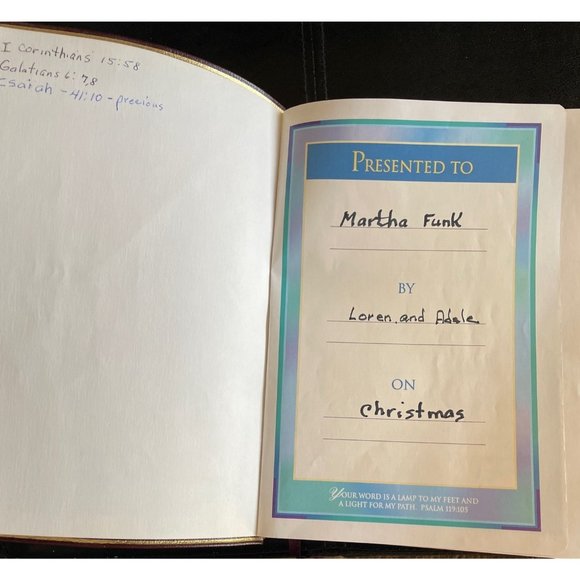 I Corinthians 15:58
Galatians 6:7,8
Isaiah - 41:10 - precious
PRESENTED TO
Martha Funk
BY
Loren and Adele
ON
Christmas
YOUR WORD IS A LAMP TO MY FEET AND
A LIGHT FOR MY PATH. PSALM 119:105